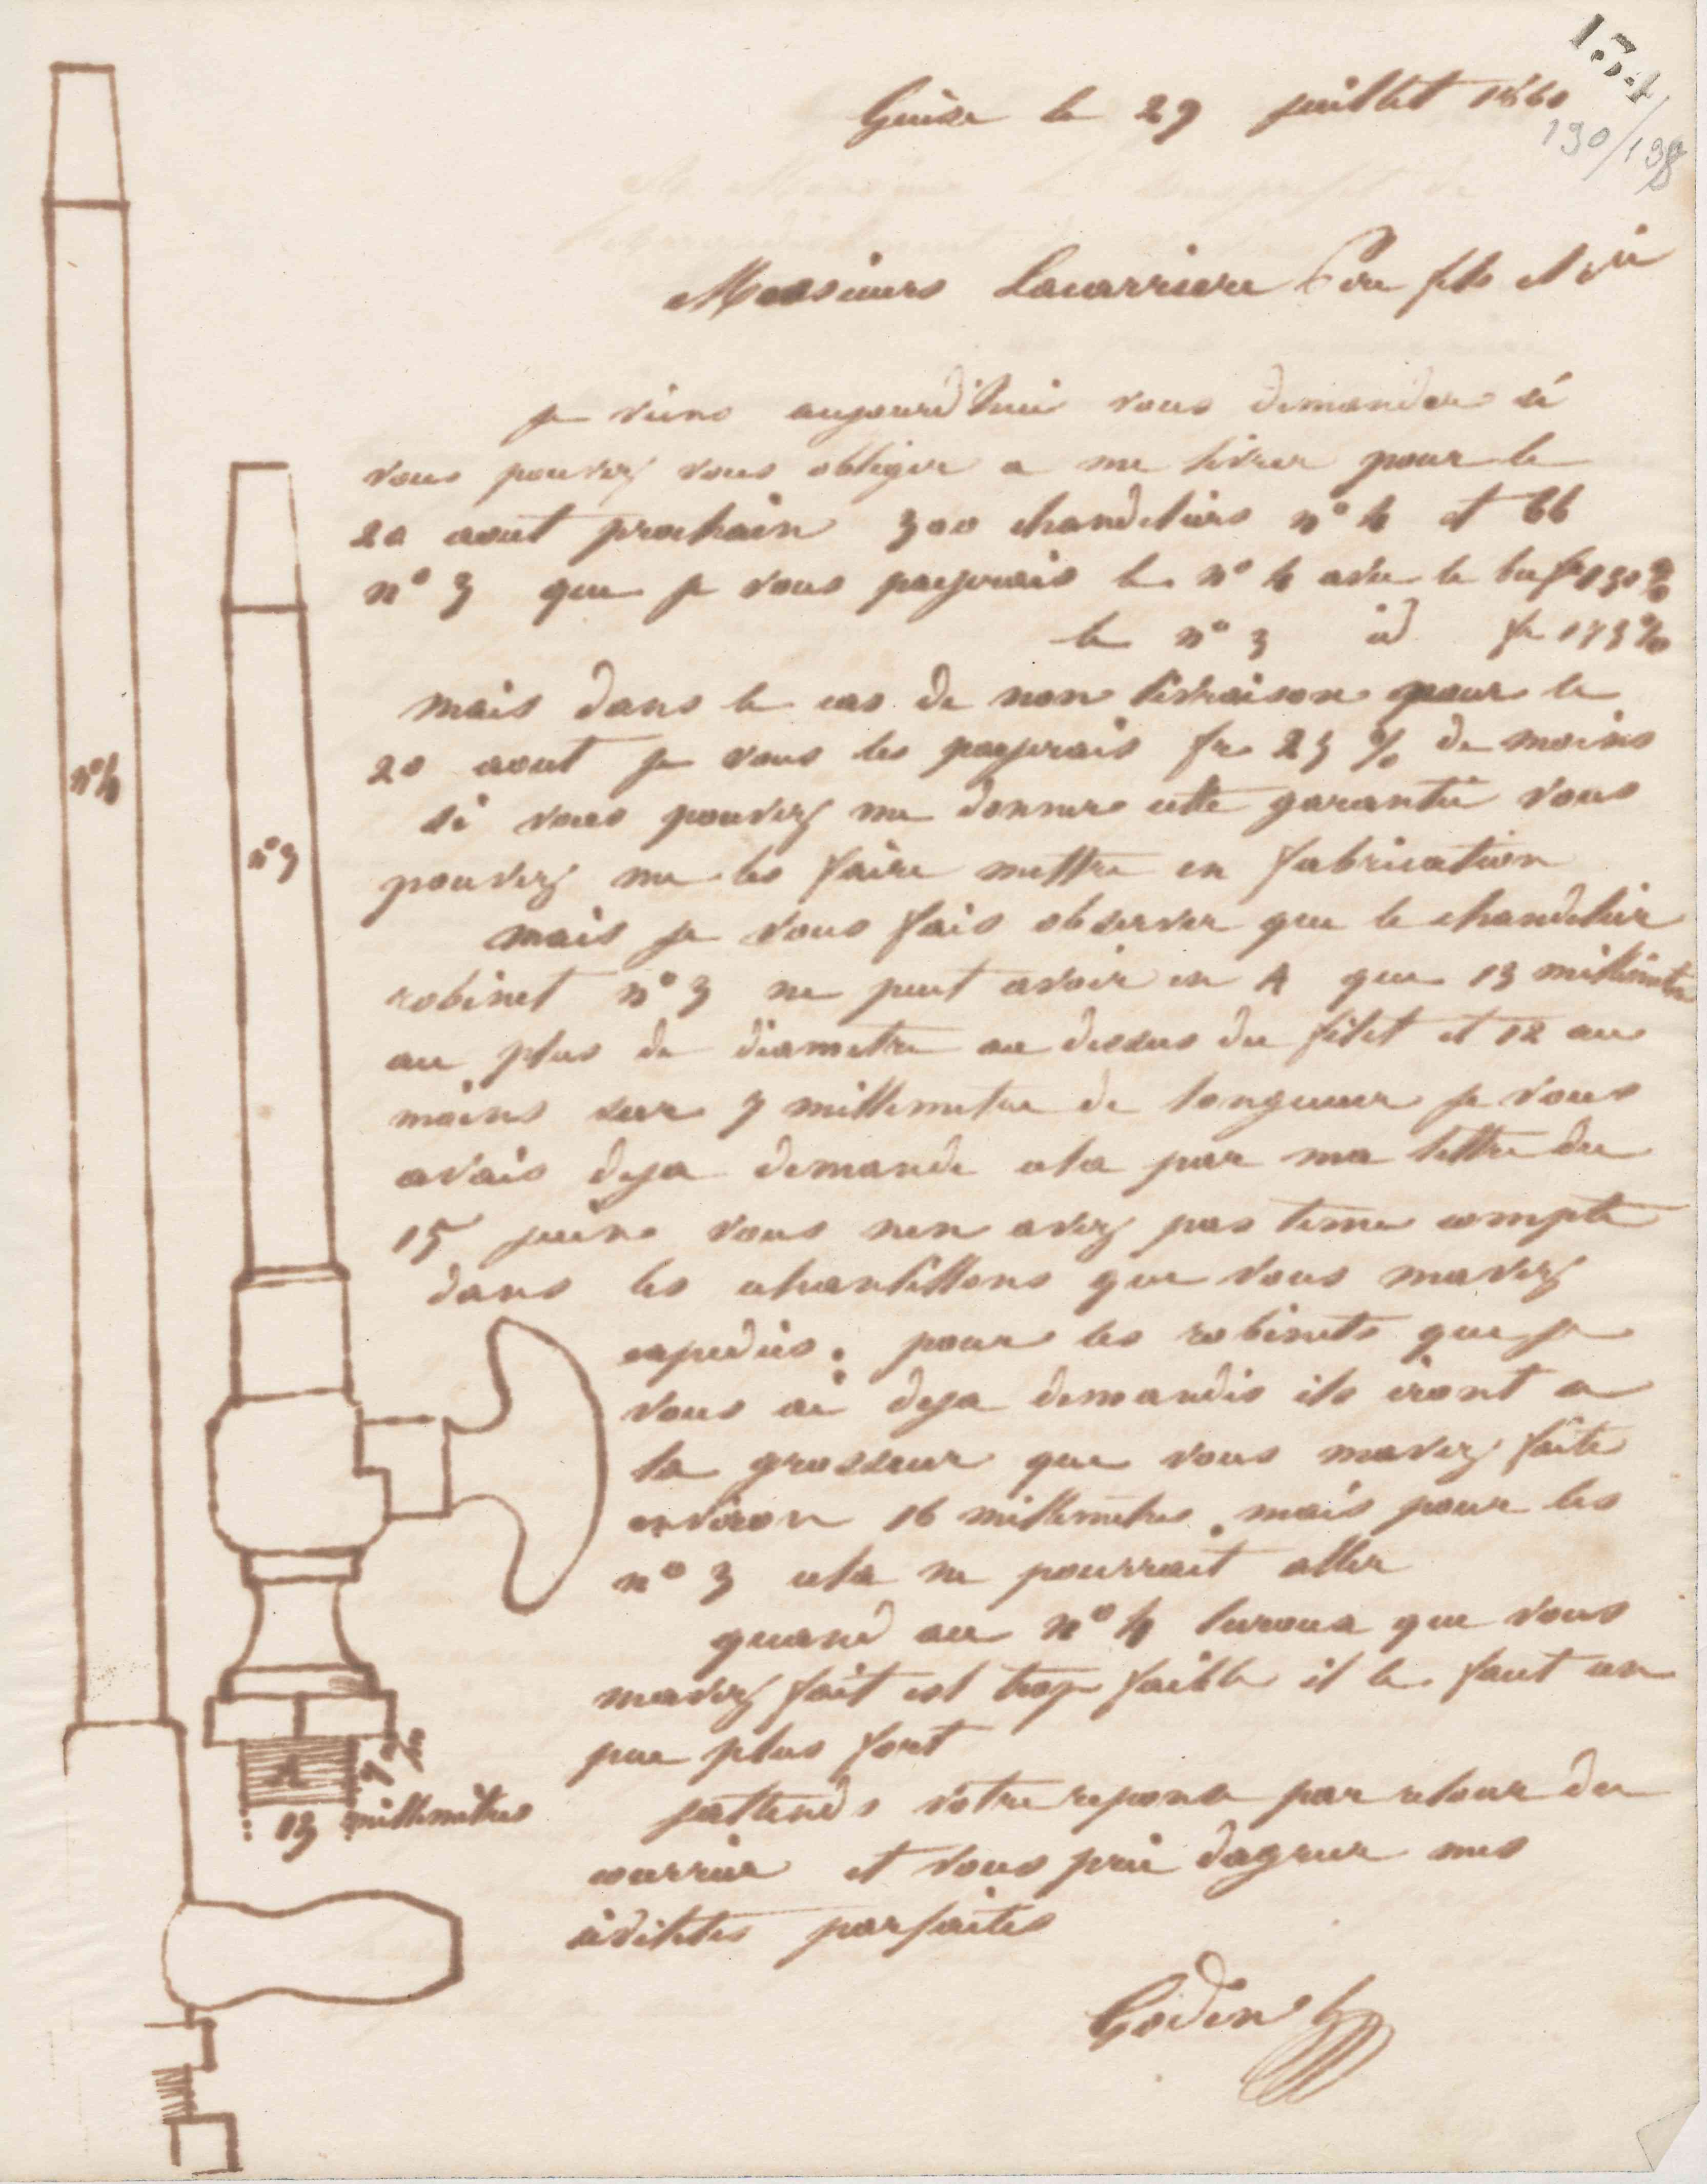 134
190/198
Guise le 29 juillet 1860
Messieurs Lacarriere Père fils et Cie
je viens aujourd'hui vous demander si
vous pouvez vous obliger a me livrer pour le
20 aout prochain 300 chandeliers n° 4 et 66
n° 3 que je vous payerais le n° 4 avec le bec fr 130 %
le n° 3 id fr 175 %
mais dans le cas de non livraison pour le
20 aout je vous les payerais fr 25 % de moins
si vous pouvez me donner cette garantie vous
pouvez me les faire mettre en fabrication
mais je vous fais observer que le chandelier
robinet n° 3 ne peut avoir en A que 13 millimetre
au plus de diametre au dessus du filet et 12 au
moins sur 7 millemetre de longueur je vous
avais deja demande cela par ma lettre du
15 juin vous nen avez pas tenu compte
dans les echantillons que vous mavez
expediés. pour les robinets que je
vous ai deja demandés ils iront a
la grosseur que vous mavez faite
environ 16 millemetres. mais pour les
n° 3 cela ne pourrait aller
quand au n° 4 que vous
mavez fait est trop faible il le faut un
peu plus fort
jattends votre reponse par retour du
courrier et vous prie dagreer mes
civilités parfaites
Godin
n° 4
n° 3
A
7 m
13 millemetres